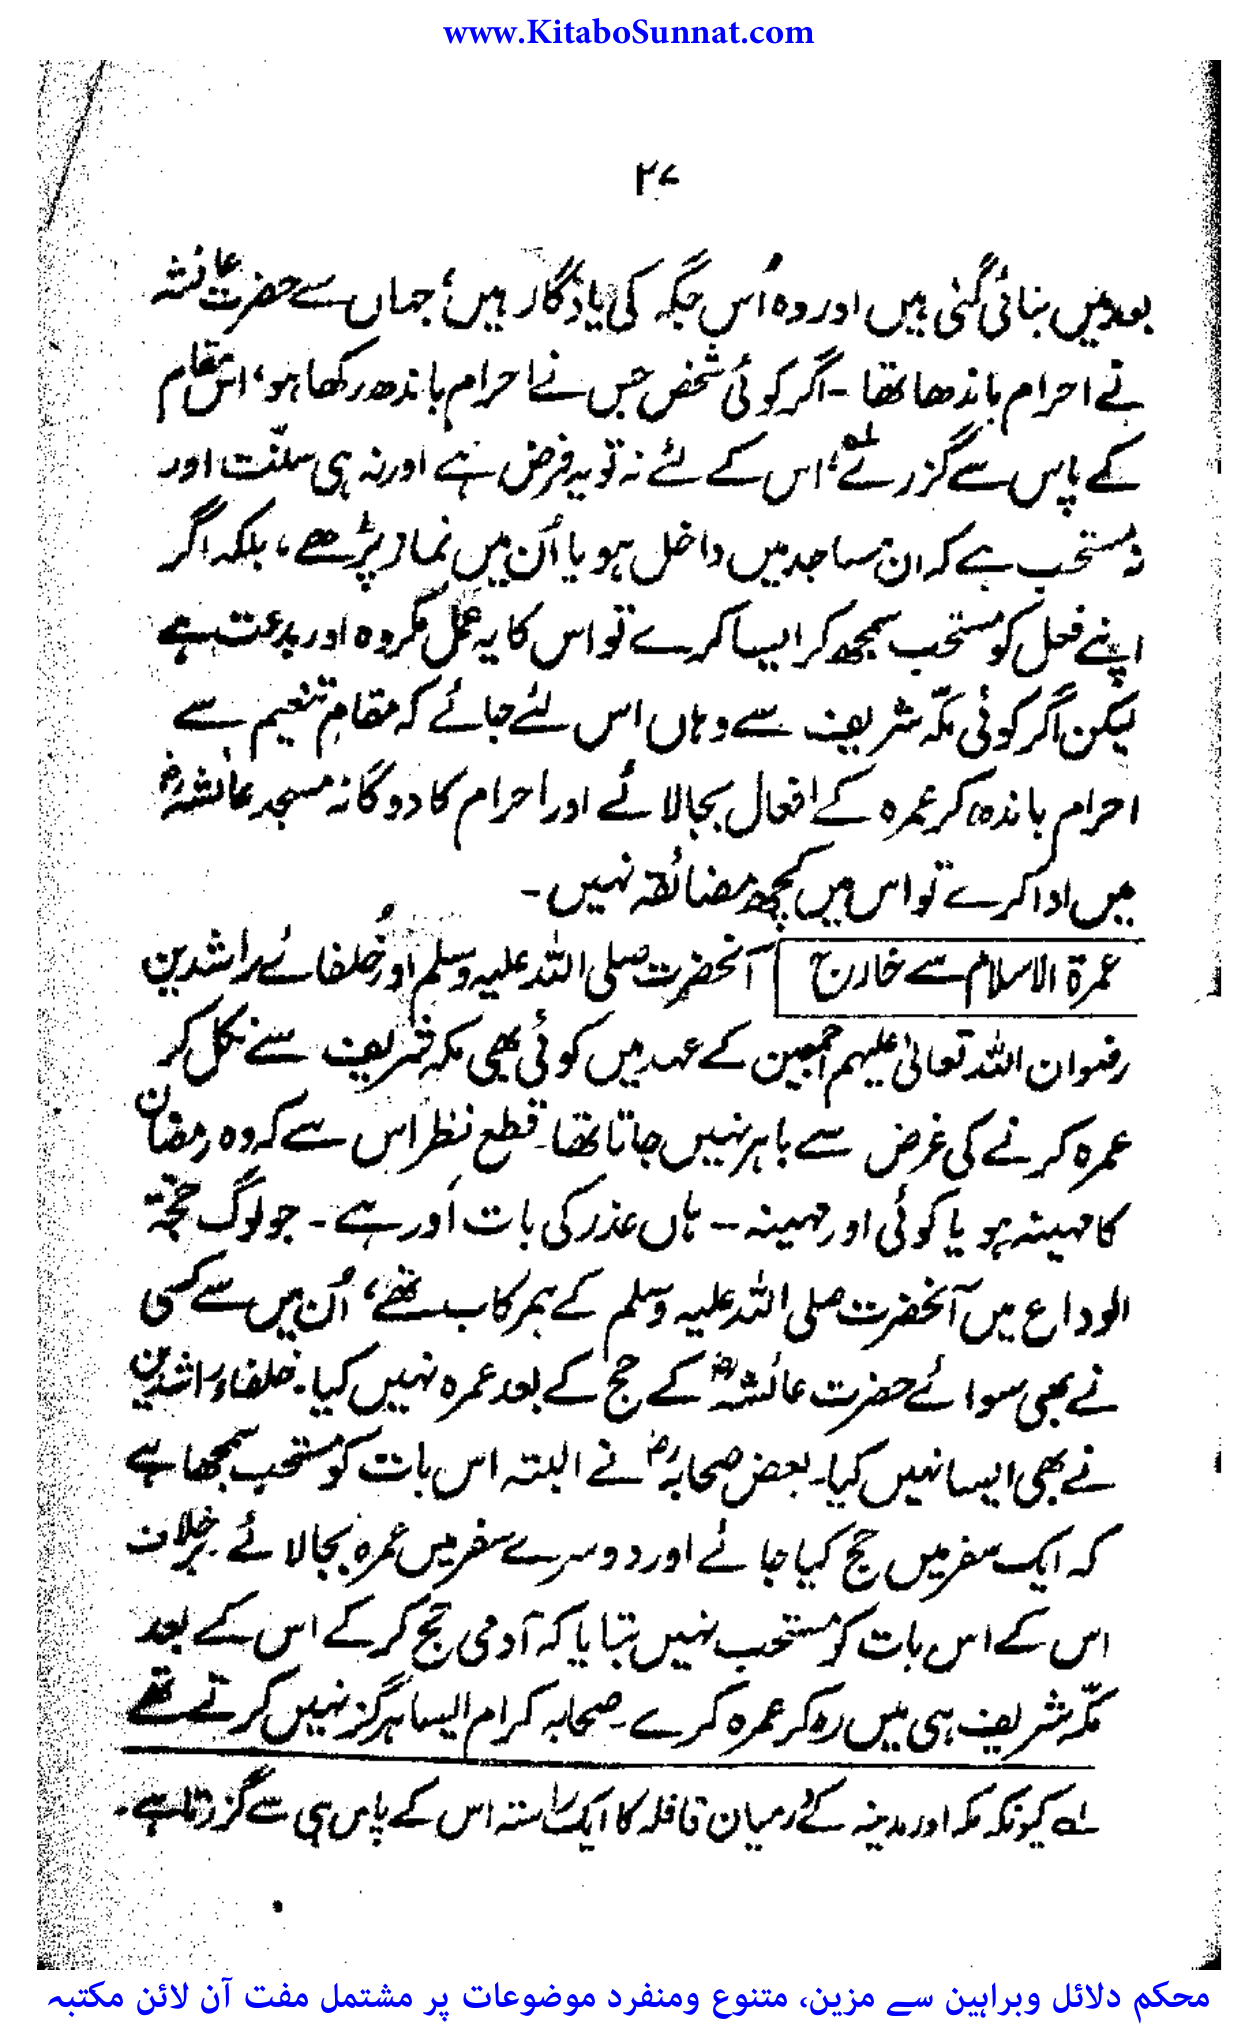 www.KitaboSunnat.com
۲۷
بعد میں بنائی گئی ہیں اور وہ اُس جگہ کی یادگار ہیں، جہاں سے حضرت عائشہ
نے احرام باندھا تھا ۔ اگر کوئی شخص جس نے احرام باندھ رکھا ہو، اس مقام
کے پاس سے گزرے؎۱، اس کے لئے نہ تو یہ فرض ہے اور نہ ہی سنّت اور
نہ مستحب ہے کہ ان مساجد میں داخل ہو یا اُن میں نماز پڑھے، بلکہ اگر
اپنے فعل کو مستحب سمجھ کر ایسا کرے تو اس کا یہ عمل مکروہ اور بدعت ہے
لیکن اگر کوئی مکّہ شریف سے وہاں اس لئے جائے کہ مقامِ تنعیم سے
احرام باندھ کر عمرہ کے افعال بجا لائے اور احرام کا دوگانہ مسجد عائشہؓ
میں ادا کرے تو اس میں کچھ مضائقہ نہیں ۔
عمرۃ الاسلام سے خارج آنحضرت صلی اللہ علیہ وسلم اور خُلفائے راشدین
رضوان اللہ تعالیٰ علیہم اجمعین کے عہد میں کوئی بھی مکہ شریف سے نکل کر
عمرہ کرنے کی غرض سے باہر نہیں جاتا تھا۔ قطع نظر اس سے کہ وہ رمضان
کا مہینہ ہو یا کوئی اور مہینہ ۔ ہاں عذر کی بات اَور ہے ۔ جو لوگ حجّۃ
الوداع میں آنحضرت صلی اللہ علیہ وسلم کے ہمرکاب تھے، اُن میں سے کسی
نے بھی سوائے حضرت عائشہؓ کے حج کے بعد عمرہ نہیں کیا۔ خلفاء راشدین
نے بھی ایسا نہیں کیا۔ بعض صحابہؓ نے البتہ اس بات کو مستحب سمجھا ہے
کہ ایک سفر میں حج کیا جائے اور دوسرے سفر میں عمرہ بجا لائے برخلاف
اس کے اس بات کو مستحب نہیں بتایا کہ آدمی حج کر کے اس کے بعد
مکّہ شریف ہی میں رہ کر عمرہ کرے۔ صحابہ کرام ایسا ہرگز نہیں کرتے تھے
؎۱ کیونکہ مکہ اور مدینہ کے درمیان قافلہ کا ایک راستہ اس کے پاس ہی سے گزرتا ہے۔
محکم دلائل وبراہین سے مزین، متنوع ومنفرد موضوعات پر مشتمل مفت آن لائن مکتبہ